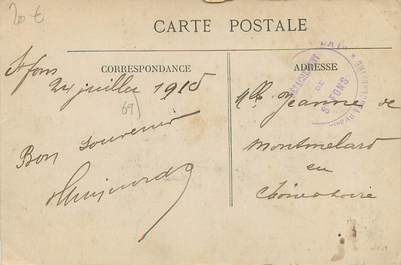 20 €
CARTE POSTALE
CORRESPONDANCE
St fons
24 juillet 1915
(69)
Bon souvenir
ADRESSE
DE
St FONS
Mlle Jeanne de
Montmelard
en
Saône et Loire